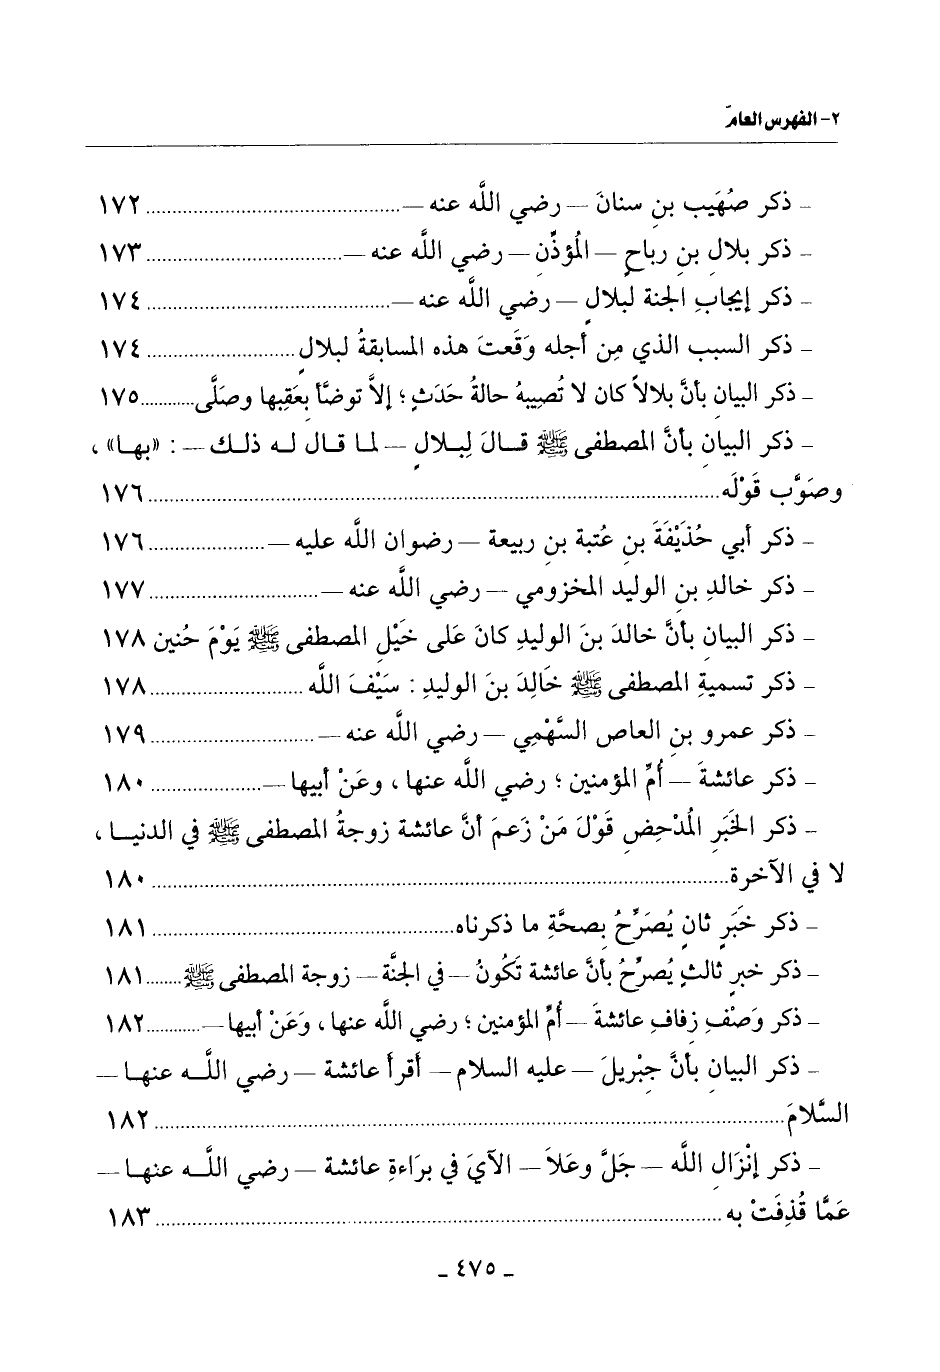 ٢- الفهرس العامّ
- ذكر صُهَيب بنِ سنانَ – رضي اللَّه عنه – ........ ١٧٢
- ذكر بلال بنِ رباحٍ – المُؤذِّن – رضي اللَّه عنه – ........ ١٧٣
- ذكر إيجابِ الجنة لبلالٍ – رضي اللَّه عنه – ........ ١٧٤
- ذكر السبب الذي مِن أجله وَقَعتَ هذه المسابقةُ لبلالٍ ........ ١٧٤
- ذكر البيان بأنَّ بلالاً كان لا تُصِيبهُ حالةُ حَدَثٍ ؛ إلاَّ توضَّأ بعَقِبها وصلَّى ........ ١٧٥
- ذكر البيان بأنَّ المصطفى ﷺ قـالَ لِبـلالٍ – لما قال له ذلك – : «بها» ،
وصَوَّب قَوْلَه ........ ١٧٦
- ذكر أبي حُذَيْفَةَ بنِ عُتبة بنِ ربيعة – رضوان اللَّه عليه – ........ ١٧٦
- ذكر خالدِ بنِ الوليد المخزومي – رضي اللَّه عنه – ........ ١٧٧
- ذكر البيانِ بأنَّ خالدَ بنَ الوليدِ كانَ عَلى خَيْلِ المصطفى ﷺ يَوْمَ حُنين ١٧٨
- ذكر تسميةِ المصطفى ﷺ خَالِدَ بنَ الوليدِ : سَيْفَ اللَّه ........ ١٧٨
- ذكر عمرو بنِ العاص السَّهْمِي – رضي اللَّه عنه – ........ ١٧٩
- ذكر عائشةَ – أُمِّ المؤمنين ؛ رضي اللَّه عنها ، وعَنْ أبيها – ........ ١٨٠
- ذكر الخَبَرِ المُدْحِضِ قَوْلَ مَنْ زَعمَ أنَّ عائشة زوجةُ المصطفى ﷺ في الدنيـا ،
لا في الآخرة ........ ١٨٠
- ذكر خَبَرٍ ثانٍ يُصَرِّحُ بِصحَّةِ ما ذكرناه ........ ١٨١
- ذكر خبرٍ ثالثٍ يُصرِّحُ بأنَّ عائشة تَكُونُ – في الجنَّة – زوجة المصطفى ﷺ ........ ١٨١
- ذكر وَصْفِ زفافِ عائشةَ – أُمِّ المؤمنين ؛ رضي اللَّه عنها ، وَعَنْ أبيها – ........ ١٨٢
- ذكر البيان بأنَّ جِبْريلَ – عليه السلام – أقرأ عائشة – رضي اللَّـه عنهـا –
السَّلامَ ........ ١٨٢
- ذكر إنْزَالِ اللَّه – جَلَّ وعَلاَ – الآيَ في برَاءةِ عائشة – رضي اللَّـه عنهـا –
عَمَّا قُذِفَتْ به ........ ١٨٣
- ٤٧٥ -